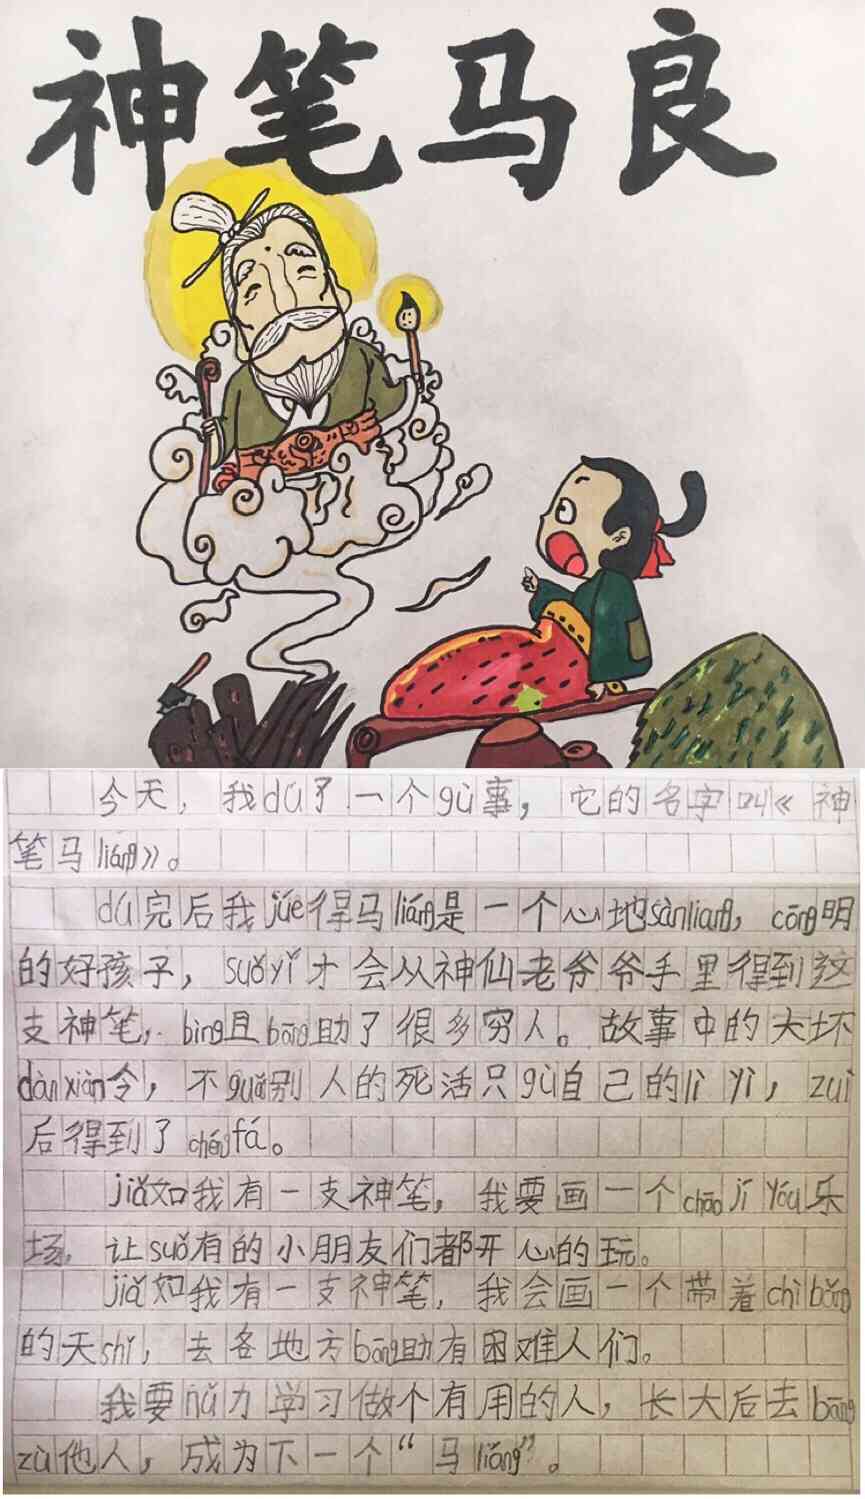 神笔马良
今天，我dú了一个gù事，它的名字叫《神
笔马liáng》。
dú完后我júe得马liáng是一个心地sànliang，cōng明
的好孩子，suǒyǐ才会从神仙老爷爷手里得到这
支神笔，bìng且bāng助了很多穷人。故事中的大坏
dànxiàn令，不guǎn别人的死活只gù自己的lì yì，zuì
后得到了chéngfá。
jiǎ如我有一支神笔，我要画一个chāo jí yóu乐
场，让suǒ有的小朋友们都开心的玩。
jiǎ如我有一支神笔，我会画一个带着chì bǎng
的天shǐ，去各地方bāng助有困难人们。
我要nǔ力学习做个有用的人，长大后去bāng
zù他人，成为下一个“马liáng”。